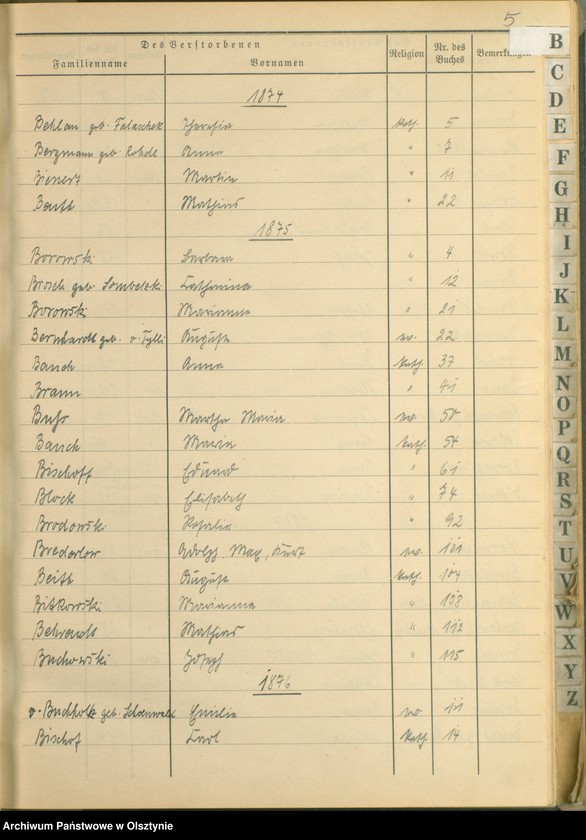 5
Des Verstorbenen
Familienname Vornamen Religion Nr. des Buches Bemerkungen
1874
Behlau geb. Falaschek Theresia Kath. 5
Bergmann geb. Rohde Anna " 7
Bienert Martin " 11
Barth Mathias " 22
1875
Borowski Barbara " 4
Brosch geb. Catharina " 12
Borowski Marianna " 21
Bernhardt geb. v. Auguste ev. 22
Bauch Anna Kath. 37
Braun " 41
Buhr Martha Maria ev. 50
Bauch Maria Kath. 54
Bischoff Eduard " 61
Block Elisabeth " 74
Brodowski Rosalie " 92
Brederlow Adolph Max, Kurt ev. 101
August Kath. 104
Bitkowski Marianna " 108
Behrendt Mathias " 112
Buchowski Joseph " 115
1876
v. Buchholz geb. Schoenwald Emilie ev. 11
Bischof Carl Kath. 14
B
C
D
E
F
G
H
I
J
K
L
M
N
O
P
Q
R
S
T
U
V
W
X
Y
Z
Archiwum Państwowe w Olsztynie